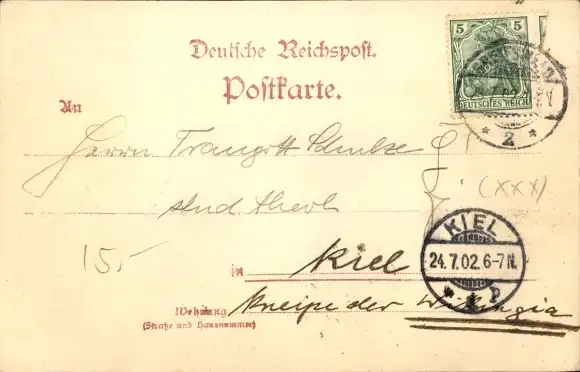 Deutsche Reichspost.
Postkarte.
5 5
DEUTSCHES REICH
* 2 *
An
Herrn Traugott Schulze
(XXX)
stud theol
15,-
KIEL
24.7.02.6-7N.
* 1 P
in Kiel
Wohnung Kneipe der Wikingia
(Straße und Hausnummer)